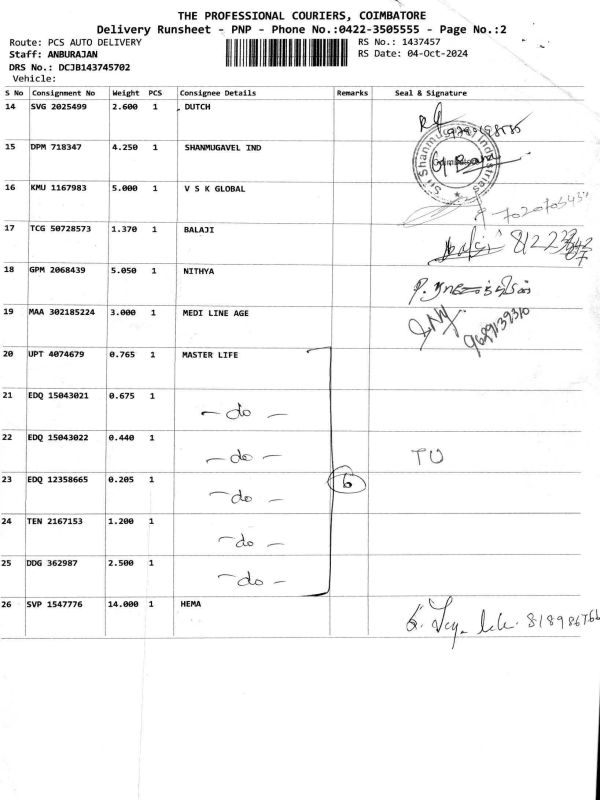 THE PROFESSIONAL COURIERS, COIMBATORE
Delivery Runsheet - PNP - Phone No.:0422-3505555 - Page No.:2
Route: PCS AUTO DELIVERY
RS No.: 1437457
Staff: ANBURAJAN
RS Date: 04-Oct-2024
DRS No.: DCJB143745702
Vehicle:
S No Consignment No Weight PCS Consignee Details Remarks Seal & Signature
14 SVG 2025499 2.600 1 DUTCH
15 DPM 718347 4.250 1 SHANMUGAVEL IND
16 KMU 1167983 5.000 1 V S K GLOBAL
17 TCG 50728573 1.370 1 BALAJI
18 GPM 2068439 5.050 1 NITHYA
19 MAA 302185224 3.000 1 MEDI LINE AGE
9689139310
20 UPT 4074679 0.765 1 MASTER LIFE
21 EDQ 15043021 0.675 1 - do -
22 EDQ 15043022 0.440 1 - do - TU
23 EDQ 12358665 0.205 1 - do - 6
24 TEN 2167153 1.200 1 - do -
25 DDG 362987 2.500 1 - do -
26 SVP 1547776 14.000 1 HEMA